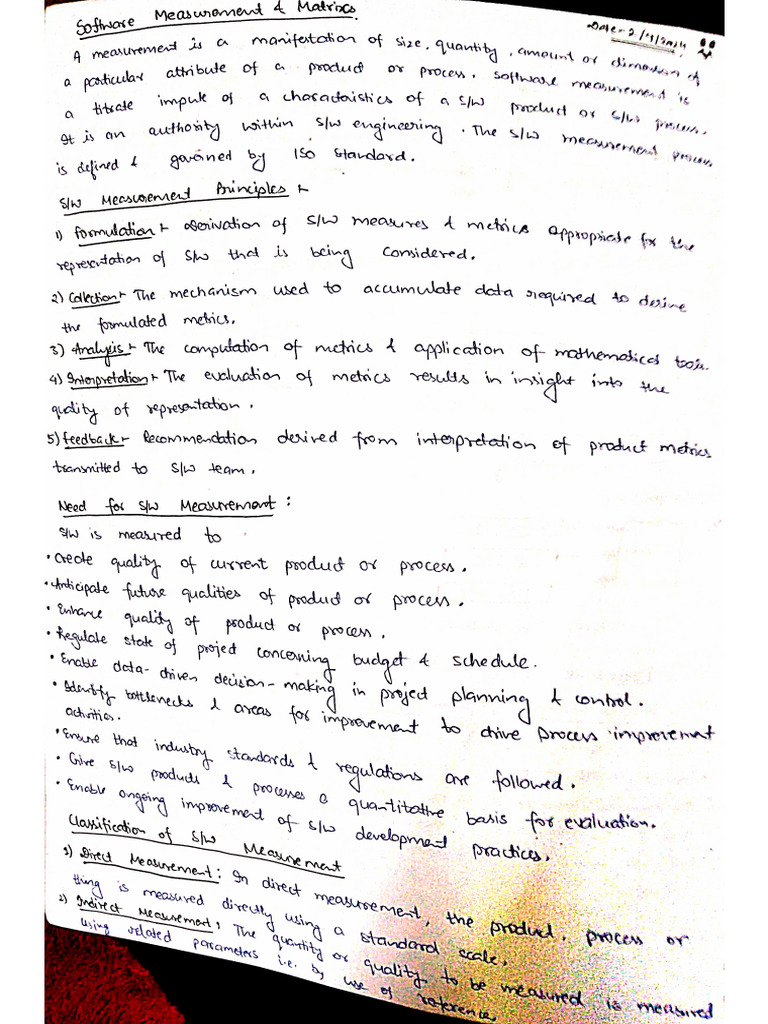 Software Measurement & Matrixs.
Date - 2/4/2024
A measurement is a manifertation of size, quantity, amount or dimension of
a particular attribute of a product or process. Software measurement is
a titrate impule of a charactaistics of a S/W product or S/W process.
It is an authority within S/W engineering. The S/W measurement process
is defined & governed by ISO standard.
S/W Measurement Principles :-
1) Formulation :- Derivation of S/W measures & metrics appropriate for the
representation of S/W that is being considered.
2) Collection :- The mechanism used to accumulate data required to derive
the formulated metrics.
3) Analysis :- The computation of metrics & application of mathematical tools.
4) Interpretation :- The evaluation of metrics results in insight into the
quality of representation.
5) feedback :- Recommendation derived from interpretation of product metrics
transmitted to S/W team.
Need for S/W Measurement :
S/W is measured to
• Create quality of current product or process.
• Anticipate future qualities of product or process.
• Enhance quality of product or process.
• Regulate state of project concerning budget & schedule.
• Enable data-driven decision-making in project planning & control.
• Identify bottlenecks & areas for improvement to drive process improvemnt
activities.
• Ensure that industry standards & regulations are followed.
• Give S/W products & processes a quantitative basis for evaluation.
• Enable ongoing improvement of S/W development practices.
Classification of S/W Measurement
1) Direct Measurement : In direct measurement, the product, process or
thing is measured directly using a standard scale.
2) Indirect Measurement : The quantity or quality to be measured is measured
using related parameters i.e. by use of reference.